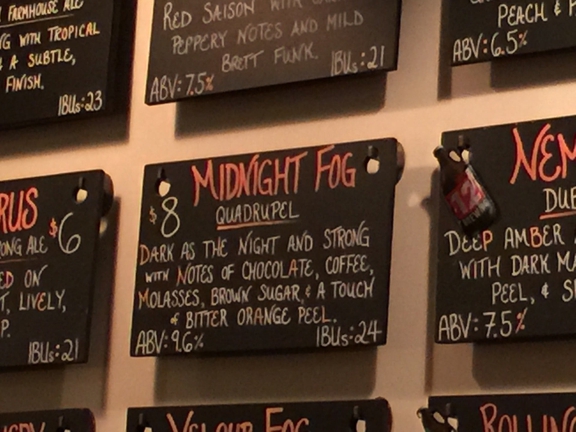 FARMHOUSE ALE
NG WITH TROPICAL
A SUBTLE,
FINISH.
IBUs:23
RED SAISON WITH
PEPPERY NOTES AND MILD
BRETT FUNK.
ABV: 7.5% IBUs:21
PEACH &
ABV: 6.5%
RUS
ONG ALE $6
ED ON
T, LIVELY,
P.
IBUs:21
MIDNIGHT FOG
$8 QUADRUPEL
DARK AS THE NIGHT AND STRONG
WITH NOTES OF CHOCOLATE, COFFEE,
MOLASSES, BROWN SUGAR, & A TOUCH
& BITTER ORANGE PEEL.
ABV: 9.6% IBUs:24
NEM
DUB
12
DEEP AMBER
WITH DARK MA
PEEL, & SP
ABV: 7.5%
VELOUR FOG
ROLLING